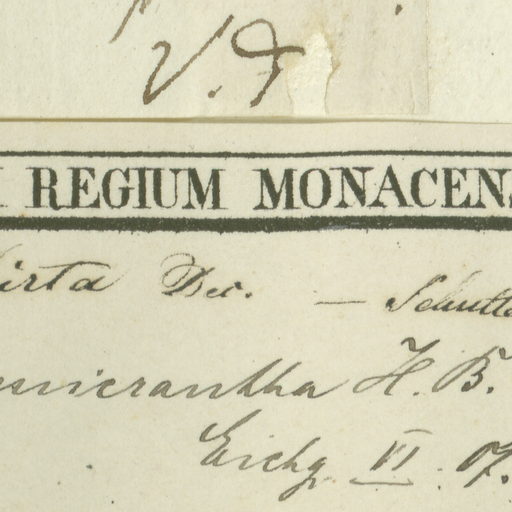 V. F
REGIUM MONACENS
hirta Dec. — Schultes
micrantha H. B.
Eichg. VI. 07.